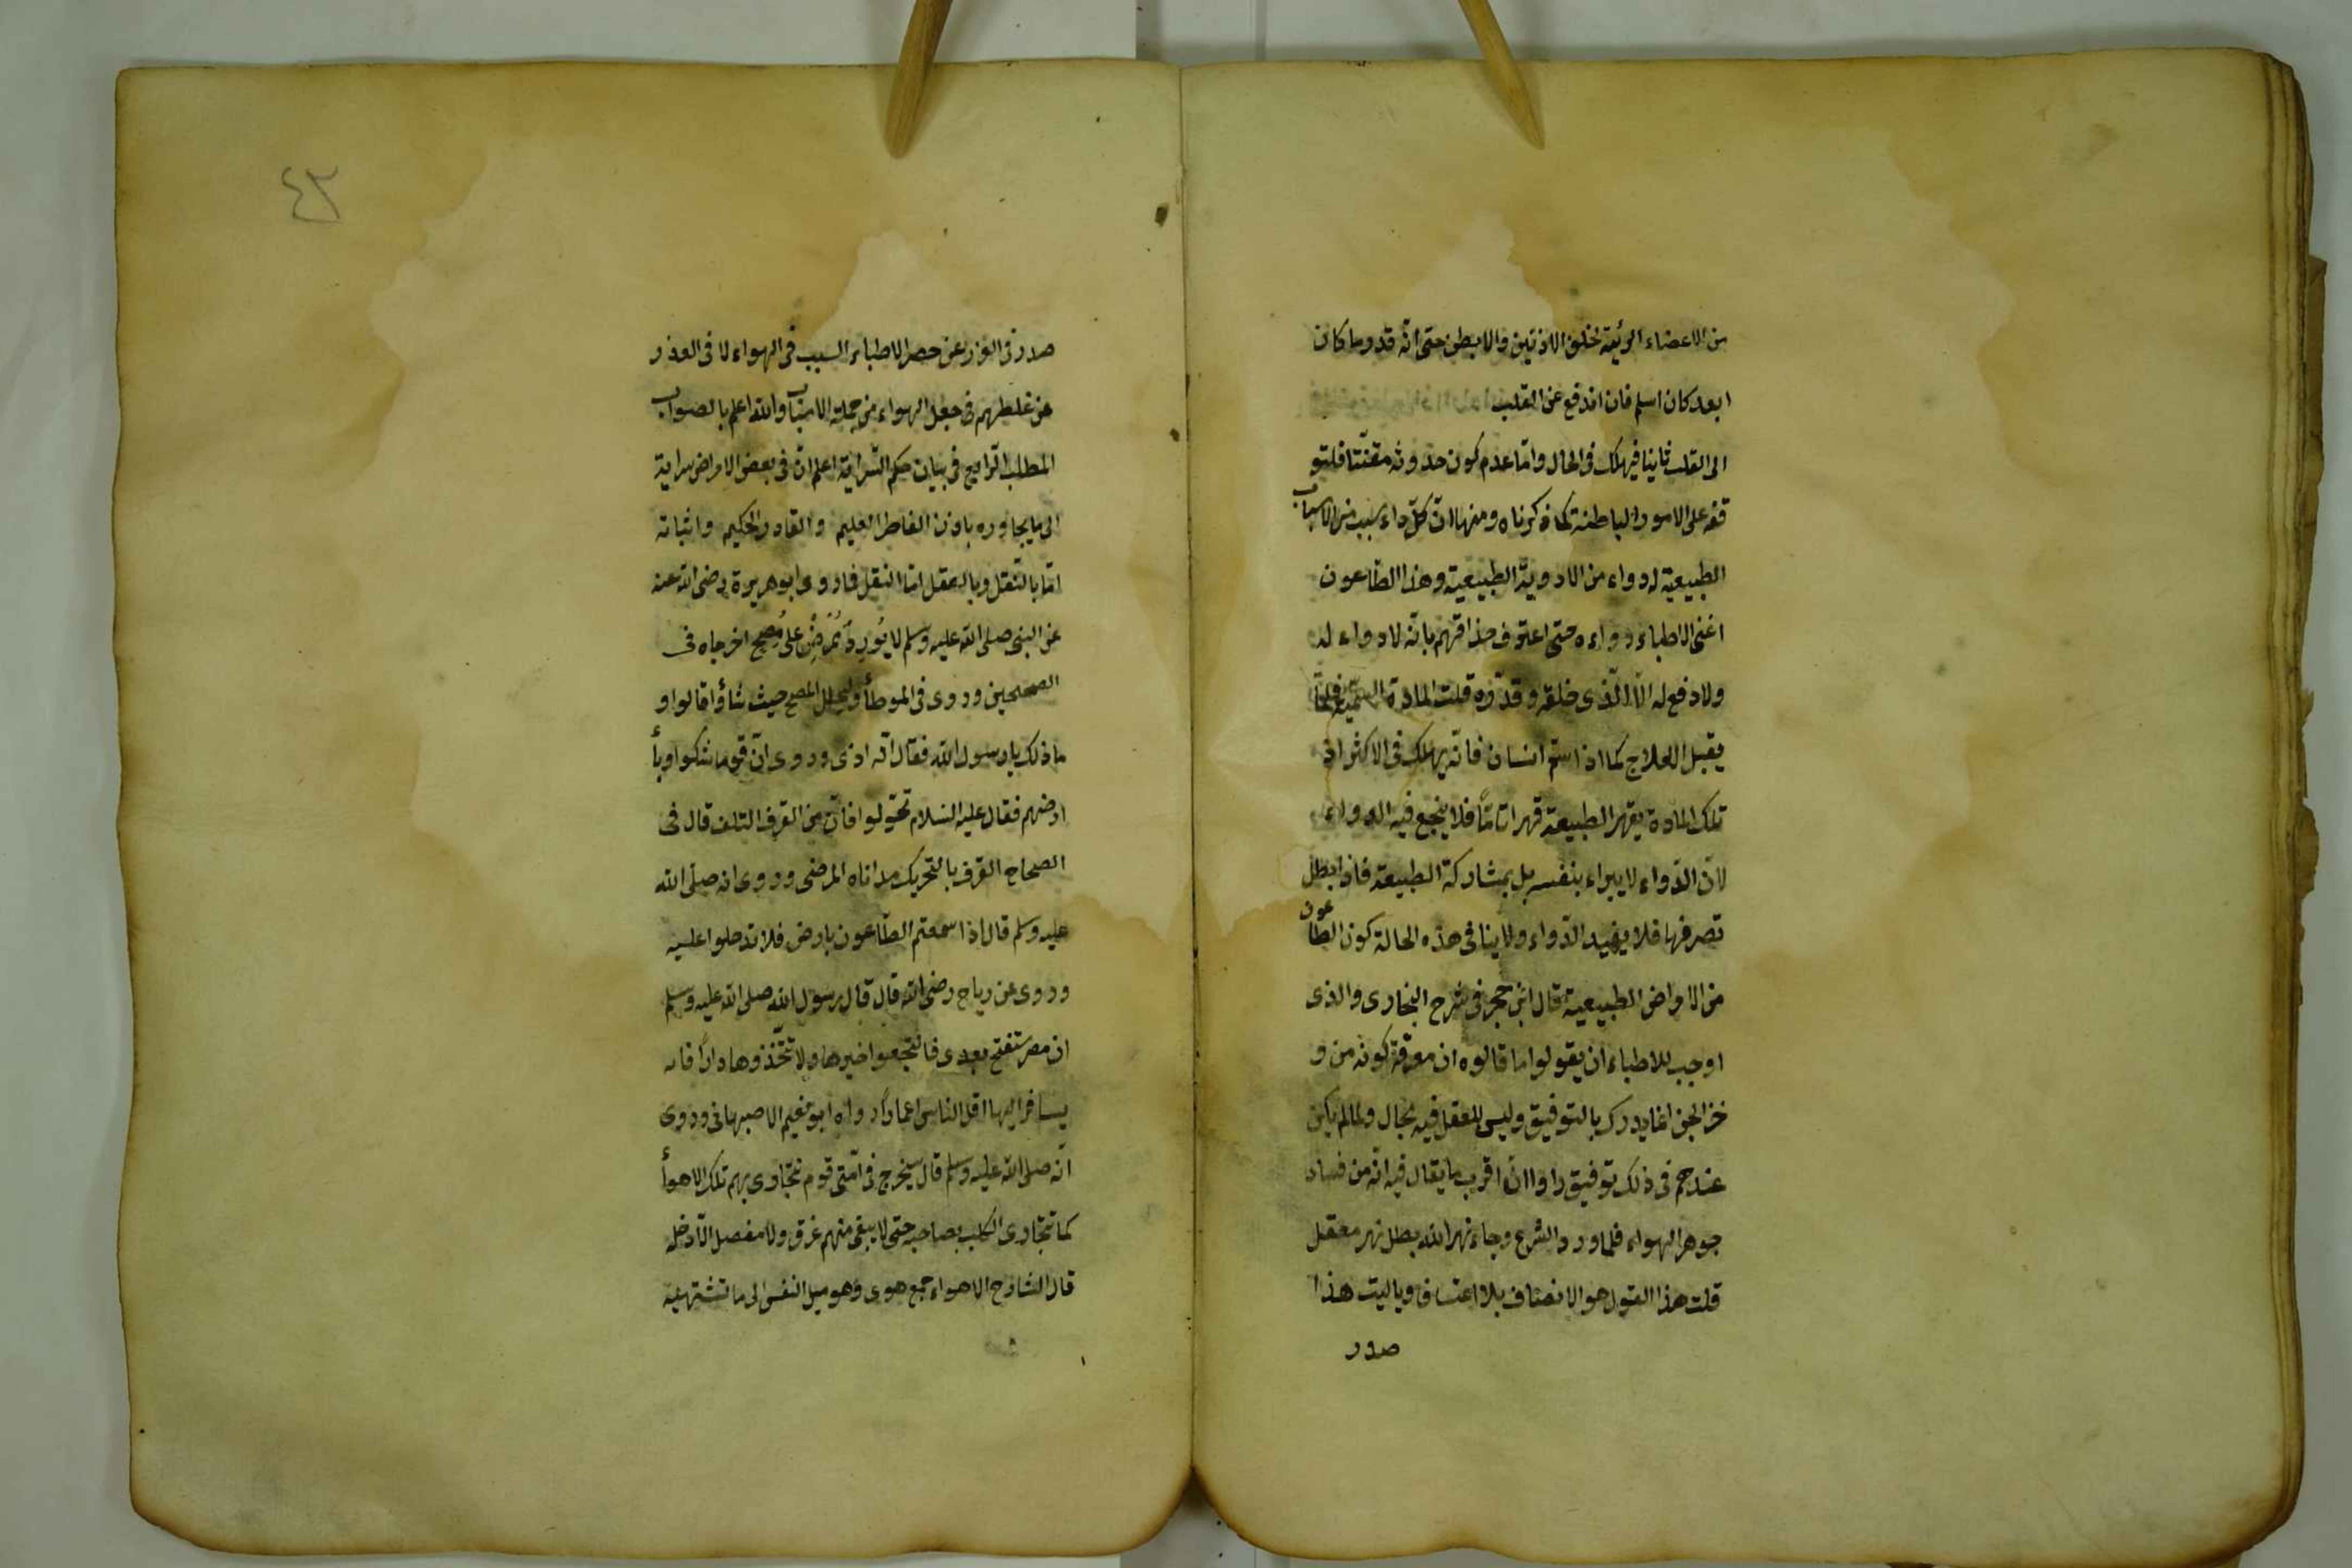 من الاعضاء الرئيّة خلف الاذنين والابطن حتى انّه قدر ما كان
ابعد كان اسلم فان اندفع عن القلب
الى القلب ثانيا فيهلك فى الحال وامّا عدم كون حدوثه مقنّنا فلتو
قفه على الامور الباطنة كما ذكرناه ومنها انّ كلّ داء بسبب من الاسباب
الطبيعية له دواء من الادوية الطبيعية وهذا الطّاعون
اغنى الاطباء دواءه حتى اعترف حذاقهم بانّه لا دواء له
ولا دفع له الّا الّذى خلقه وقدّره قلت المادة السّمّيّة قلّما
يقبل العلاج كما اذا سمّ انسان فانّه يهلك فى الاكثر اذ
تلك المادة يقهر الطبيعة قهرا تامّا فلا ينجع فيه الدواء
لانّ الدّواء لا يبراء بنفسه بل بمشاركة الطبيعة فاذا بطل
تصرفها فلا يفيد الدّواء ولا ينافى هذه الحالة كون الطّاعون
من الامراض الطبيعية قال ابن حجر فى شرح البخارى والذى
اوجب للاطباء ان يقولوا ما قالوه ان معرفة كونه من و
خز الجن انما يدرك بالتوفيق وليس للعقل فيه مجال ولما لم يكن
عندهم فى ذلك توفيق راوا انّ اقرب ما يقال فيه انّه من فساد
جوهر الهواء فلما ورد الشرع وجاء نهر الله بطل نهر معقل
قلت هذا القول هو الانصاف بلا اعتساف وياليت هذا
صدر
٤٣
صدر فى العذر عن حصر الاطباء السبب فى الهواء لا فى العذر
عن غلطهم فى جعل الهواء من جملة الاسباب والله اعلم بالصواب
المطلب الرّابع فى بيان حكم السّراية اعلم انّ فى بعض الامراض سراية
الى ما يجاوره باذن الفاطر العليم والقادر الحكيم واثباته
امّا بالنّقل وبالعقل امّا النقل فما روى ابو هريرة رضى الله عنه
عن النبى صلى الله عليه وسلم لا يُورِدُ مُمْرِضٌ على مُصِحٍّ اخرجاه فى
الصحيحين وروى فى الموطأ وليحلل المصح حيث شاؤا قالوا و
ما ذلك يا رسول الله فقال انّه اذى وروى انّ قوما شكوا وبأ
ارضهم فقال عليه السّلام تحوّلوا فانّ من القرف التلف قال فى
الصحاح القرف بالتحريك مداناه المرضى وروى انه صلّى الله
عليه وسلم قال اذا سمعتم الطّاعون بارض فلا تدخلوا عليه
وروى عن رباح رضى الله قال قال رسول الله صلى الله عليه وسلم
ان مصر ستفتح بعدى فانتجعوا خيرها ولا تتّخذوها دارًا فانه
يساق اليها اقل الناس اعمارًا رواه ابو نعيم الاصبهانى وروى
انّه صلى الله عليه وسلم قال سيخرج فى امّتى قوم تتجارى بهم تلك الاهوأ
كما تتجارى الكلب بصاحبه حتى لا يبقى منهم عرق ولا مفصل الّا دخله
قال الشارح الاهواء جمع هوى وهو ميل النفس الى ما تشتهيه